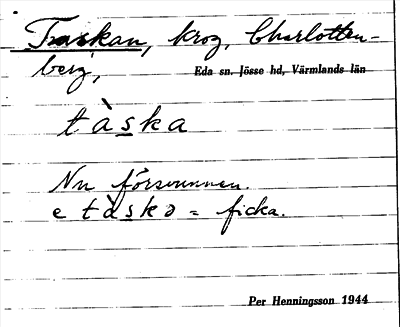 Taskan, krog, Charlotten-
berg, Eda sn. Jösse hd, Värmlands län
tàska
Nu försvunnen.
e tàskə = ficka.
Per Henningsson 1944